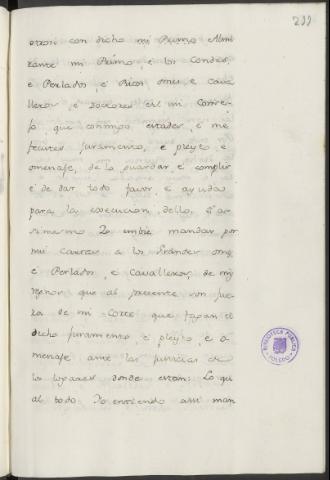 299
otrosi con dicho mi Primo Almi
rante mi Primo, e los Condes,
e Perlados, e Ricos omes e Cava
lleros, e Doctores del mi Conse-
jo que conmigo estades, e me
fecistes juramento, e pleyto e
omenaje, de lo guardar, e complir
e de dar todo favor, e ayuda
para la execucion dello, e as-
simesmo Yo embie mandar por
mis cartas a los Grandes omes
e Perlados, e Cavalleros, de mis
regnos que al presente son fue-
ra de mi Corte que fagan el
dicho juramento, e pleyto, e o-
menaje ante las justicias de
los logares donde estan: Lo qu
al todo Yo entiendo assi man
BIBLIOTECA PUBLICA
TOLEDO